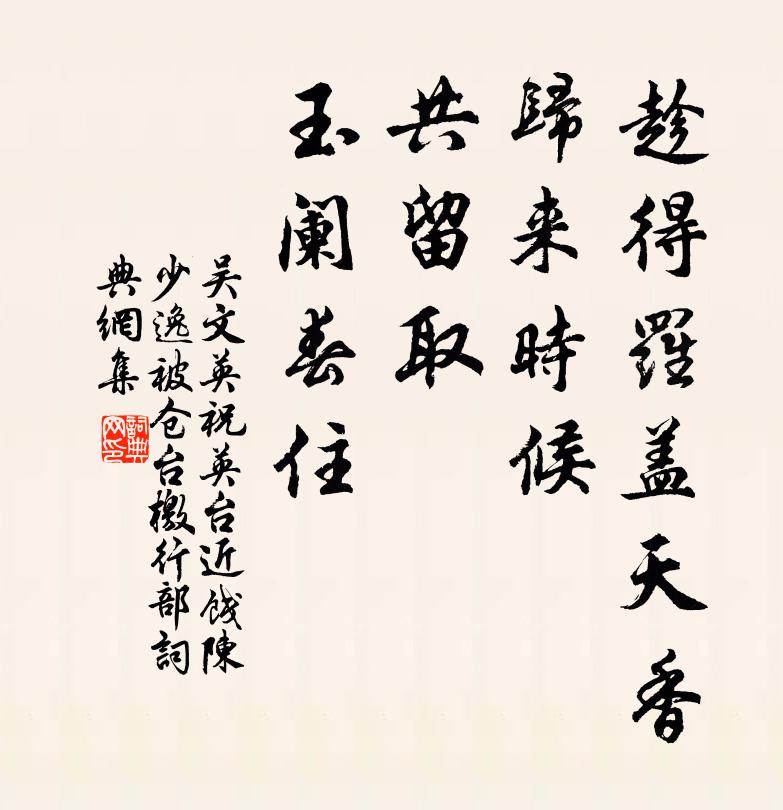 趁得羅蓋天香
歸来時候
共留取
玉闌春住
吴文英祝英台近餞陳
少逸被仓台檄行部詞
典網集
詞典网印